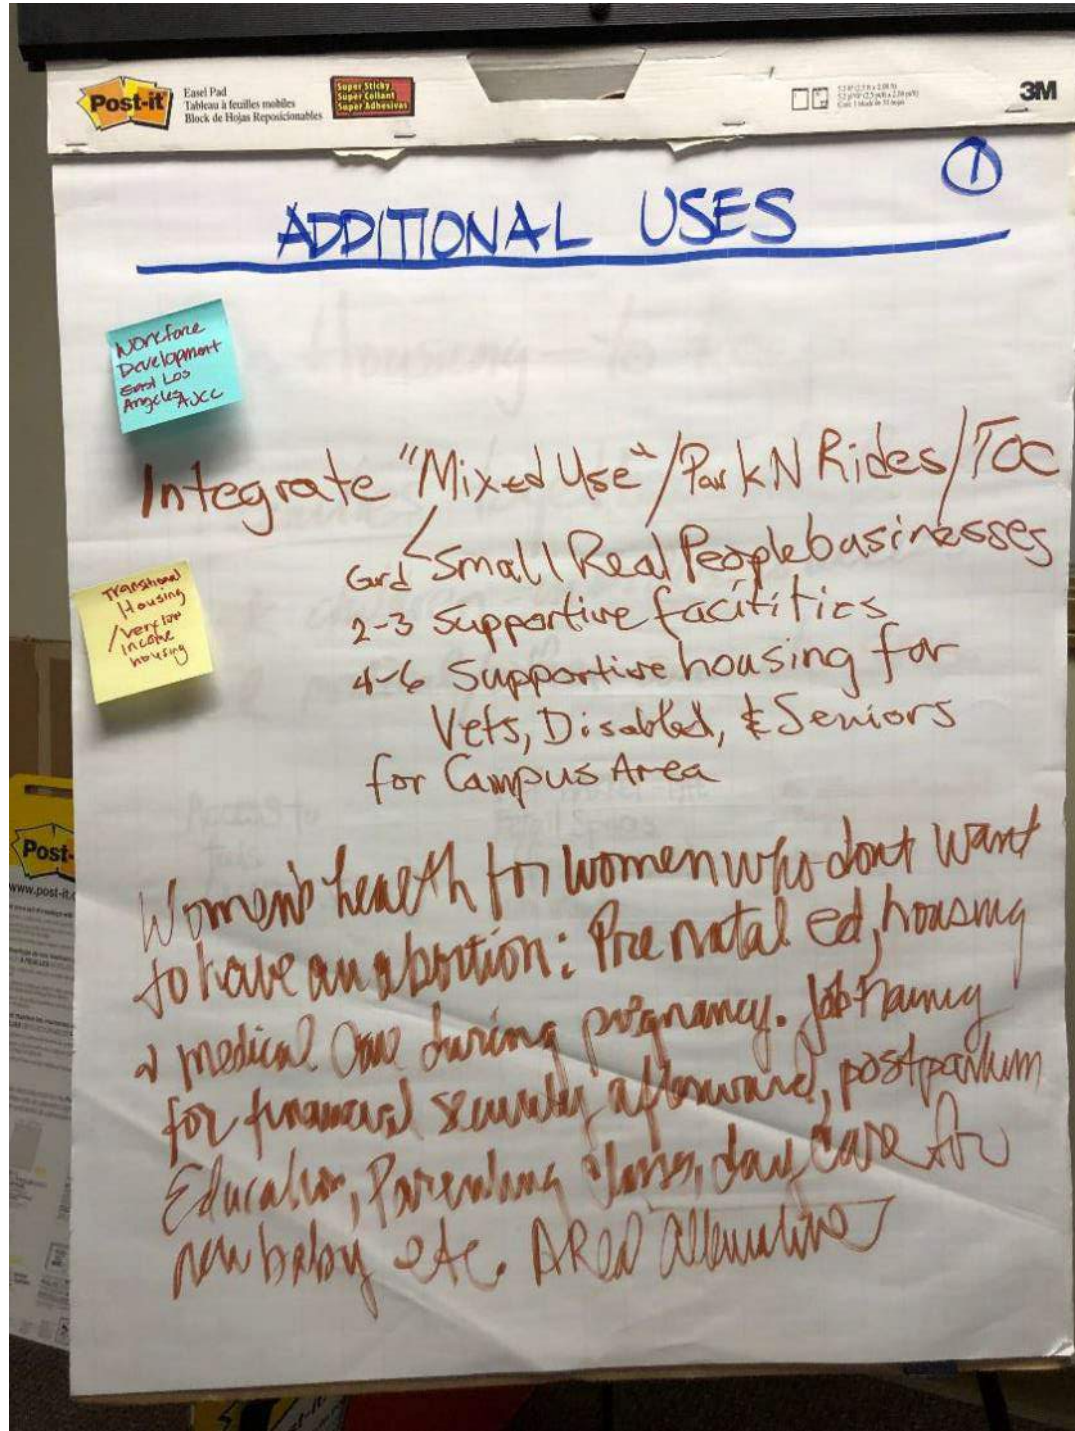 Post-it
Easel Pad
Tableau à feuilles mobiles
Block de Hojas Reposicionables
Super Sticky
Super Collant
Super Adhesivas
3M
1
ADDITIONAL USES
Workforce
Development
East Los
Angeles AJCC
Integrate "Mixed Use"/Park N Rides/TOC
Grd Small Real People businesses
2-3 Supportive facitities
4-6 Supportive housing for
Vets, Disabled, & Seniors
for Campus Area
Transitional
Housing
/very low
income
housing
Women's health for women who dont want
to have an abortion: Pre natal ed, housing
& medical care during pregnancy. Job training
for financial security afterward, postpartum
Education, Parenting classes, day care for
new baby etc. A Real alternative
Post-
www.post-it.c